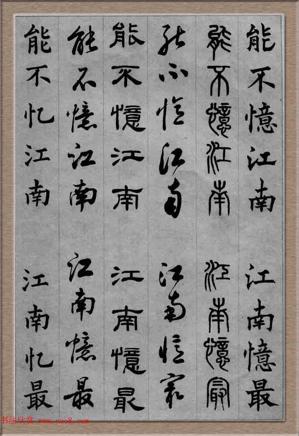 能不憶江南江南憶最
能不憶江南江南憶最
能不憶江南江南憶最
能不憶江南江南憶最
能不憶江南江南憶最
能不忆江南江南忆最